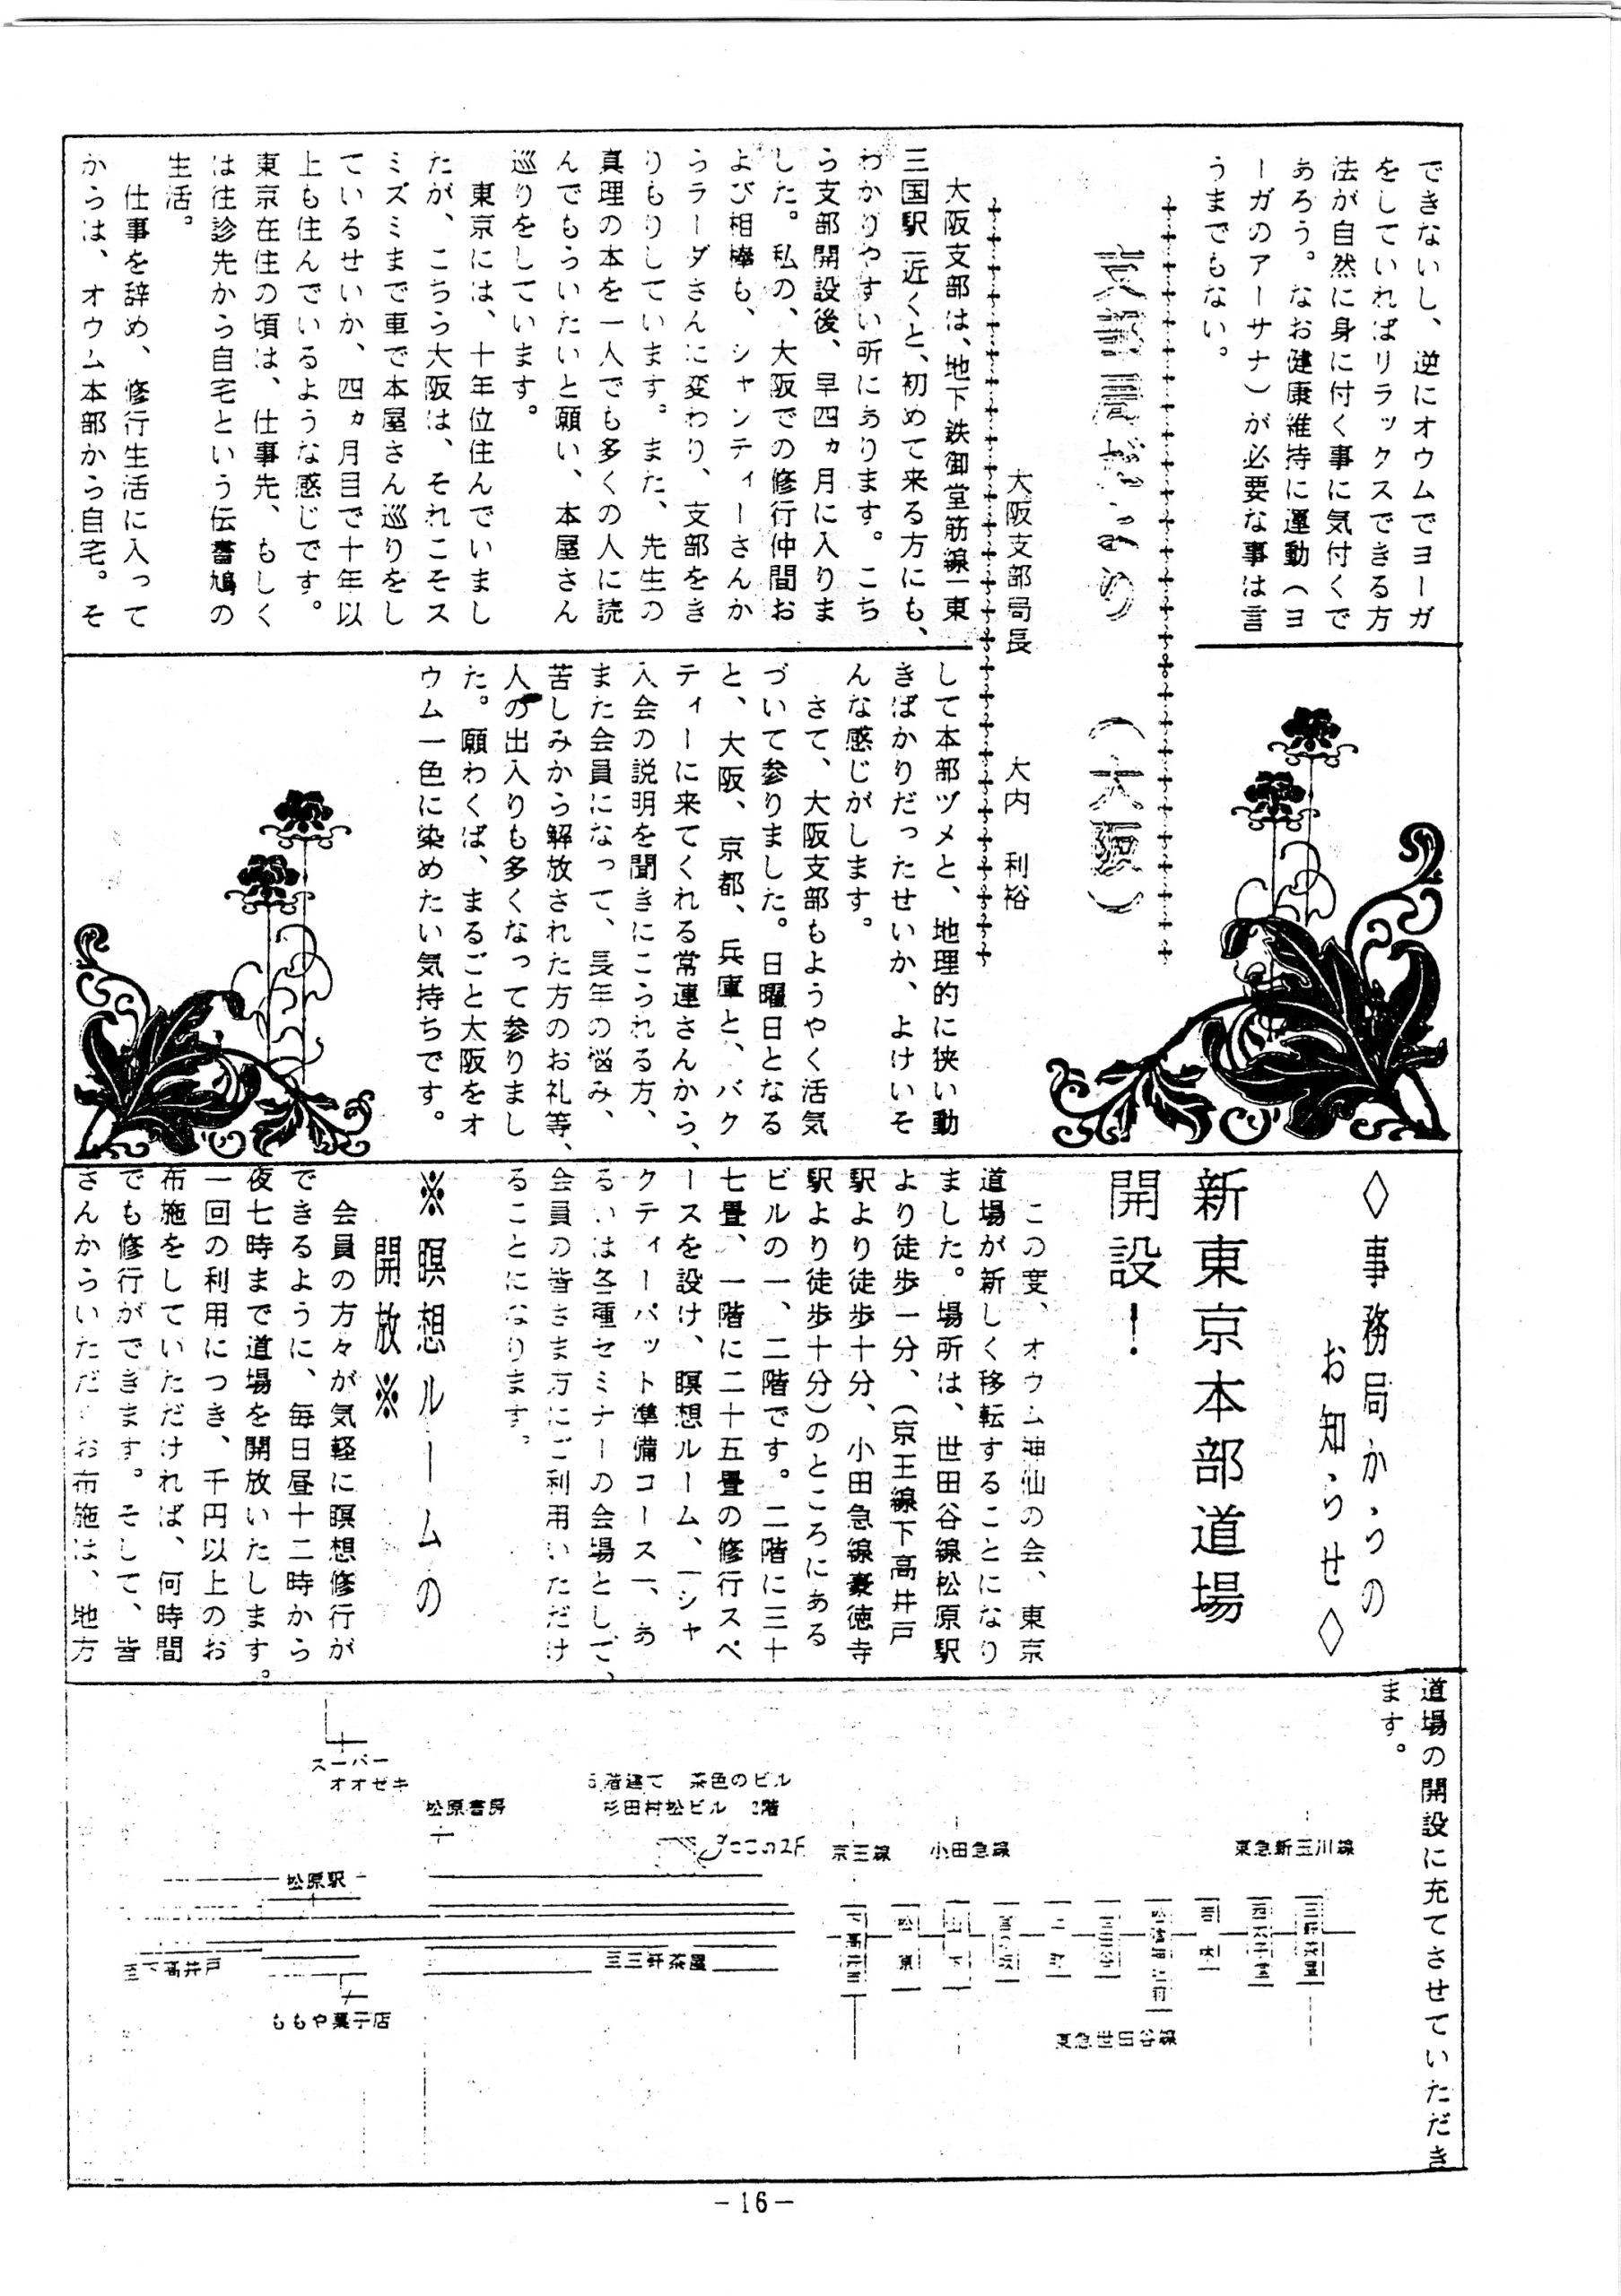 できないし、逆にオウムでヨーガ
をしていればリラックスできる方
法が自然に身に付く事に気付くで
あろう。なお健康維持に運動（ヨ
ーガのアーサナ）が必要な事は言
うまでもない。
支部局だより（大阪）
大阪支部局長　大内　利裕
大阪支部は、地下鉄御堂筋線「東
三国駅」近くと、初めて来る方にも、
わかりやすい所にあります。こち
ら支部開設後、早四ヵ月に入りま
した。私の、大阪での修行仲間お
よび相棒も、シャンティーさんか
らラーダさんに変わり、支部をき
りもりしています。また、先生の
真理の本を一人でも多くの人に読
んでもらいたいと願い、本屋さん
巡りをしています。
東京には、十年位住んでいまし
たが、こちら大阪は、それこそス
ミズミまで車で本屋さん巡りをし
ているせいか、四ヵ月目で十年以
上も住んでいるような感じです。
東京在住の頃は、仕事先、もしく
は往診先から自宅という伝書鳩の
生活。
仕事を辞め、修行生活に入って
からは、オウム本部から自宅。そ
して本部ヅメと、地理的に狭い動
きばかりだったせいか、よけいそ
んな感じがします。
さて、大阪支部もようやく活気
づいて参りました。日曜日となる
と、大阪、京都、兵庫と、バク
ティーに来てくれる常連さんから、
入会の説明を聞きにこられる方、
また会員になって、長年の悩み、
苦しみから解放された方のお礼等、
人の出入りも多くなって参りまし
た。願わくば、まるごと大阪をオ
ウム一色に染めたい気持ちです。
◇事務局からの
お知らせ◇
新東京本部道場
開設！
この度、オウム神仙の会、東京
道場が新しく移転することになり
ました。場所は、世田谷線松原駅
より徒歩一分、（京王線下高井戸
駅より徒歩十分、小田急線豪徳寺
駅より徒歩十分）のところにある
ビルの一、二階です。二階に三十
七畳、一階に二十五畳の修行スペ
ースを設け、瞑想ルーム、「シャ
クティーパット準備コース」、あ
るいは各種セミナーの会場として、
会員の皆さま方にご利用いただけ
ることになります。
※瞑想ルームの
開放※
会員の方々が気軽に瞑想修行が
できるように、毎日昼十二時から
夜七時まで道場を開放いたします。
一回の利用につき、千円以上のお
布施をしていただければ、何時間
でも修行ができます。そして、皆
さんからいただくお布施は、地方
道場の開設に充てさせていただき
ます。
スーパー
オオゼキ
松原書房
5階建て　茶色のビル
杉田村松ビル　2階
ここの2F
松原駅
至下高井戸
至三軒茶屋
ももや菓子店
京王線
小田急線
東急新玉川線
下高井戸
松原
山下
宮の坂
上町
世田谷
松陰神社前
若林
西太子堂
三軒茶屋
東急世田谷線
－16－